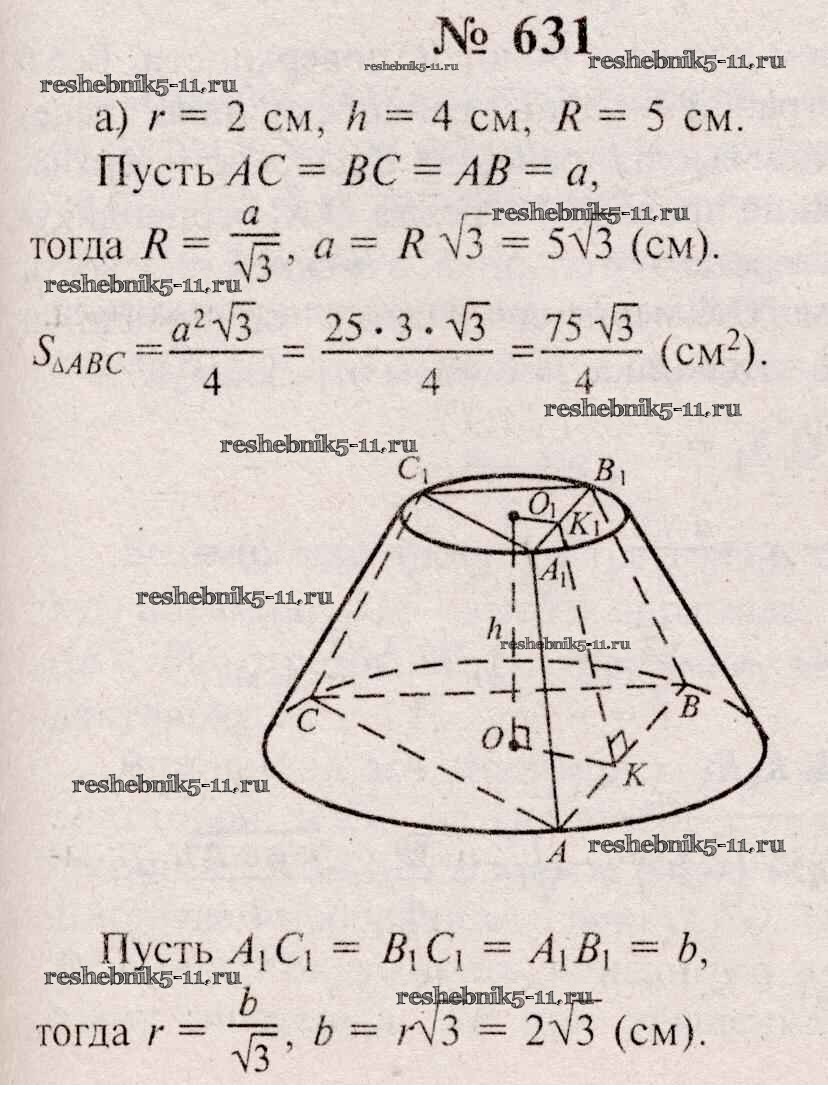 № 631
reshebnik5-11.ru
reshebnik5-11.ru
reshebnik5-11.ru
а) r = 2 см, h = 4 см, R = 5 см.
Пусть AC = BC = AB = a,
reshebnik5-11.ru
тогда R = a/√3, a = R √3 = 5√3 (см).
reshebnik5-11.ru
S△ABC = a²√3/4 = 25 · 3 · √3/4 = 75 √3/4 (см²).
reshebnik5-11.ru
reshebnik5-11.ru
C₁ B₁
O₁ K₁
A₁
reshebnik5-11.ru
h
reshebnik5-11.ru
C B
O
K
reshebnik5-11.ru
A
reshebnik5-11.ru
Пусть A₁C₁ = B₁C₁ = A₁B₁ = b,
reshebnik5-11.ru
reshebnik5-11.ru
тогда r = b/√3, b = r√3 = 2√3 (см).